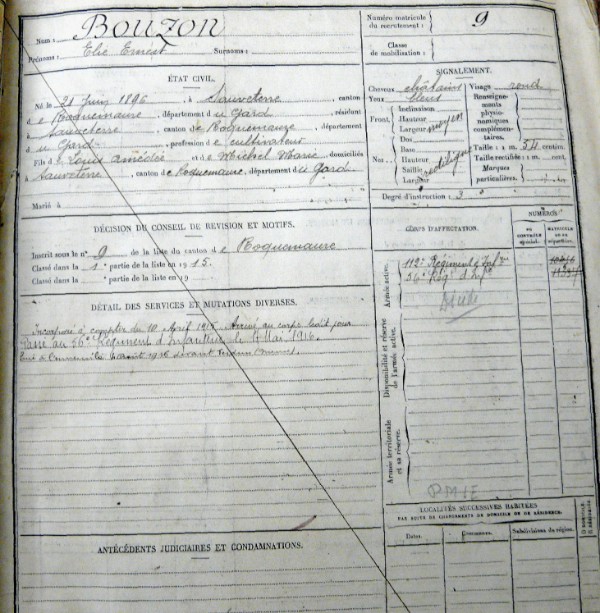 Nom : BOUZON
Prénoms : Elie Ernest Surnoms :
Numéro matricule du recrutement : 9
Classe de mobilisation :
ÉTAT CIVIL.
Né le 21 Juin 1896, à Sauveterre, canton
de Roquemaure, département du Gard, résidant
à Sauveterre, canton de Roquemaure, département
du Gard, profession de cultivateur
fils de Louis Amédée et de Michel Marie, domiciliés
à Sauveterre, canton de Roquemaure, département du Gard.
Marié à
SIGNALEMENT.
Cheveux châtains Visage rond
Yeux bleus
Front. Inclinaison
Hauteur
Largeur moyen
Nez. Dos
Base
Hauteur
Saillie rectiligne
Largeur
Renseignements physionomiques complémentaires.
Taille : 1 m. 54 cent.
Taille rectifiée : 1 m. cent.
Marques particulières.
Degré d'instruction : 3
DÉCISION DU CONSEIL DE RÉVISION ET MOTIFS.
Inscrit sous le n° 9 de la liste du canton de Roquemaure
Classé dans la 1e partie de la liste en 1915.
Classé dans la partie de la liste en 19
CORPS D'AFFECTATION.
NUMÉROS
AU CONTRÔLE spécial.
MATRICULE OU DE LA répartition.
Armée active.
112e Régiment d'Infrie
56e Régt d'Infie
Disponibilité et réserve de l'armée active.
Armée territoriale et sa réserve.
DÉTAIL DES SERVICES ET MUTATIONS DIVERSES.
Incorporé à compter du 10 Avril 1915. Arrivé au corps ledit jour
Passé au 56e Régiment d'Infanterie le 4 Mai 1916.
Tué à l'ennemi le août 1916 devant
ANTÉCÉDENTS JUDICIAIRES ET CONDAMNATIONS.
LOCALITÉS SUCCESSIVES HABITÉES
PAR SUITE DE CHANGEMENTS DE DOMICILE OU DE RÉSIDENCE.
Dates. Communes. Subdivisions de région.